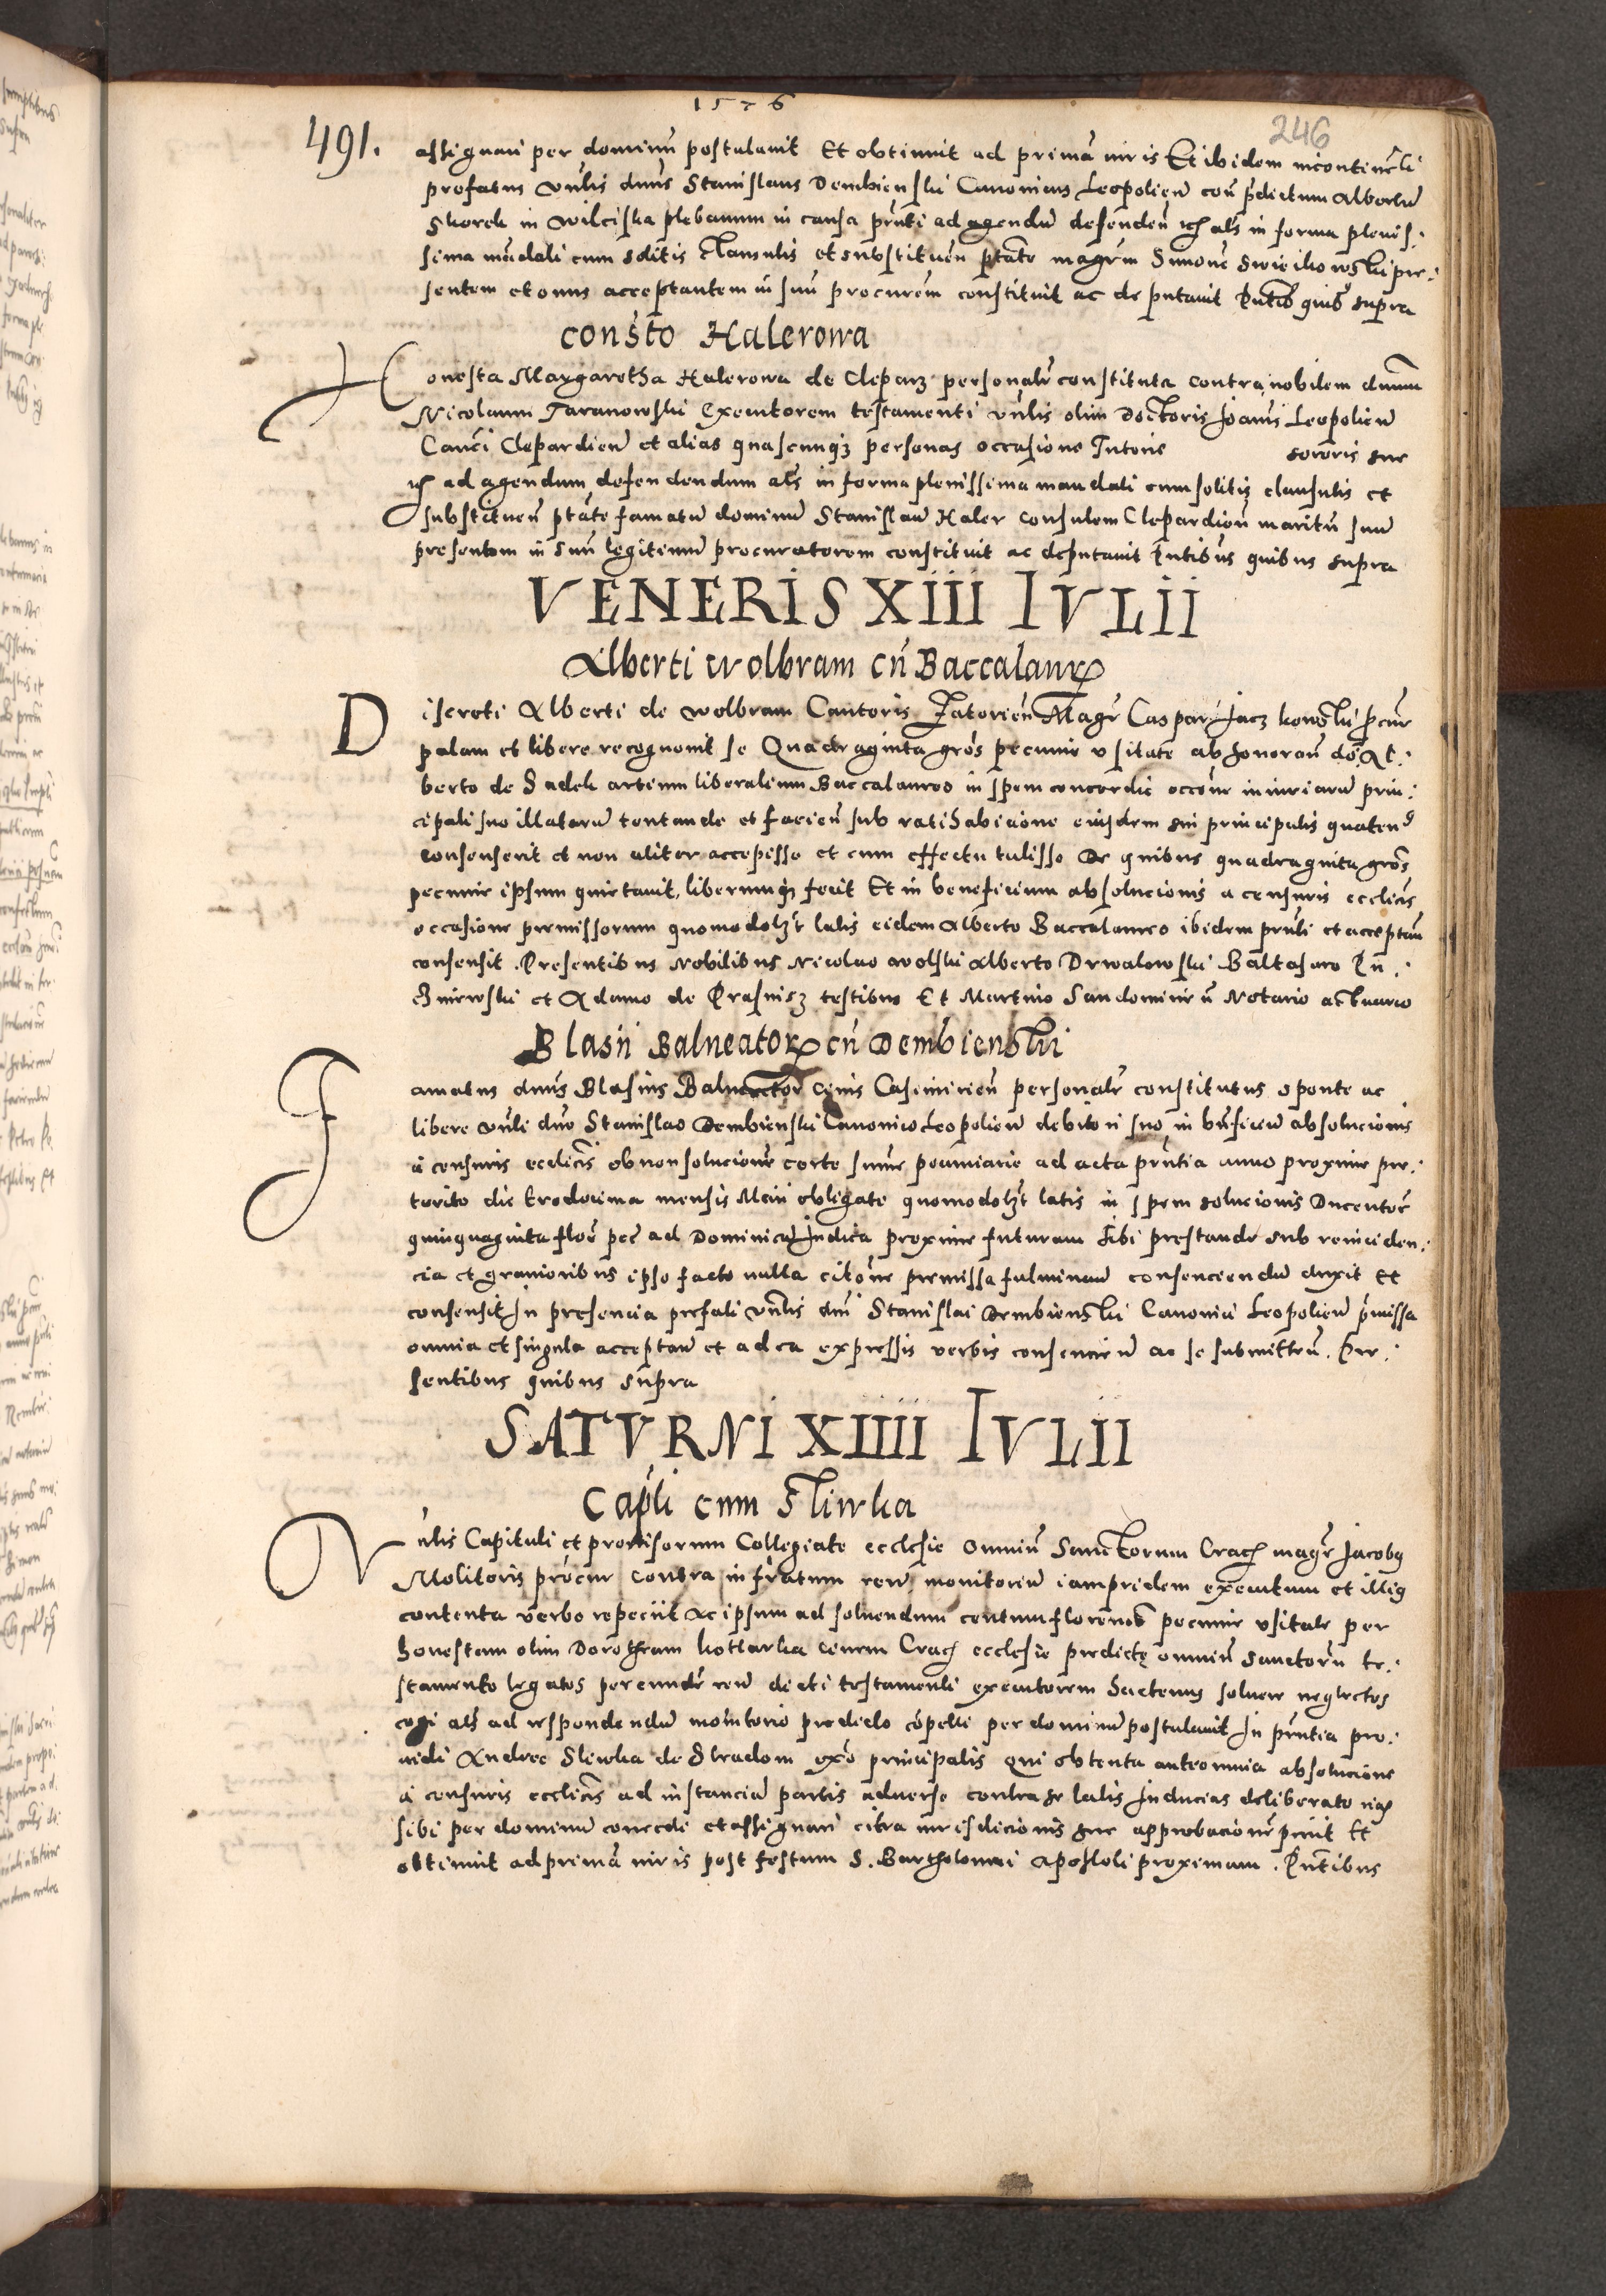 1576
246
491.
assignari per dominū postulavit Et obtinuit ad primā iuris Et ibidem incontinēti
prefatus vn̄lis dnūs Stanislaus Dembienski Canonicus Leopolieñ coñ p̄dictum Albertū
Skorek in Wilciska plebanum in causa pn̄ti ad agendū defendeñ als in forma plenis:
sima mādati cum solitis clausulis et substitueñ ptāte magr̄m Simonē pre:
sentem et onus acceptantem in suū procurēm constituit ac deputavit Pn̄tib quib supra
consto Halerowa
Honesta Margaretha Halerowa de Cleparz personalr̄ constituta contra nobilem dnum
Nicolaum Taranowski Executorem testamenti vn̄lis olim Doctoris Joanis Leopolieñ
Canci Clepardieñ et alias quascunq₃ personas occasione Tutorie sororis sue
ad agendum defendendum als in forma plenissima mandati cum solitis clausulis et
substitueñ ptāte famatū dominū Stanislaū Haler Consulem Clepardieñ maritū suū
presentem in suū legitimū procuratorem constituit ac deputavit Pn̄tibus quibus supra
VENERIS XIII IVLII
Alberti Wolbram cū Baccalaur
Discreti Alberti de Wolbram Cantoris Magr̄ Caspar p̄cur
palam et libere recognovit se Quadraginta gros pecunie usitate ab honorañ do Al:
berto de Sadek artium liberalium Baccalaureo in spem concordie occōne iniuriarū prin:
cipali suo illatarū tentande et facieñ sub ratihabicione eiusdem sui principalis quaten
consenserit et non aliter accepisse et cum effectu tulisse De quibus quadraginta gros
pecunie ipsum quietavit, liberumq₃ fecit Et in beneficium absolucionis a censuris ecclicis
occasione premissorum quomodolz latis eidem Alberto Baccalaureo ibidem pn̄ti et acceptañ
consensit. Presentibus Nobilibus Nicolao Wolski Alberto Drwalowski Baltasaro
et Adamo de Prasnisz testibus Et Martino Sandomirieñ Notario actuario
Blasii Balneator cū Dembienski
Famatus dnūs Blasius Balneator civis Casimirieñ personalr̄ constitutus sponte ac
libere vn̄li dno Stanislao Dembienski Canonico Leopolieñ debitori suo in bn̄ficiū absolucionis
a censuris ecclicis ob non solucionē certe sume pecuniarie ad acta pn̄tia anno proxime pre:
terito die tredecima mensis Maii obligate quomodolz latis in spem solucionis Ducentor
quinquaginta flor pec ad Dominicā Judica proxime futuram sibi prestande sub reinciden:
cia et gravioribus ipso facto nulla citōne premissa fulminañ consenciendū duxit Et
consensit In presencia prefati vn̄lis dni Stanislai Dembienski Canonici Leopolieñ p̄missa
omnia et singula acceptañ et ad ea expressis verbis consencieñ ac se submitteñ. Pre:
sentibus quibus supra
SATVRNI XIIII IVLII
Capli cum Sliwka
Vn̄lis Capituli et provisorum Collegiate ecclesie Omniū Sanctorum Crac magr̄ Jacobg
Molitoris procur Contra infratum reū monitoriū iampridem executum et illig
contenta verbo repeciit Ac ipsum ad solvendum centum florenos pecunie usitate per
honestam olim Dorotheam Kotlarka civem Crac ecclesie predictę omniū Sanctorū te:
stamento legatos per eundē reū dicti testamenti executorem hactenus solvere neglectos
cogi als ad respondendū monitorio predicto cōpelli per dominū postulavit In pn̄tia pro:
vidi Andree Sliwka de Stradom exō principalis Qui obtenta ante omnia absolucione
a censuris ecclicis ad instanciā partis adverse contra se latis Inducias deliberatorias
sibi per dominū concedi et assignari citra iurisdicionis sue approbacionē petiit Et
obtinuit ad primā iuris post festum S. Bartholomei Apostoli proximam. Pn̄tibus